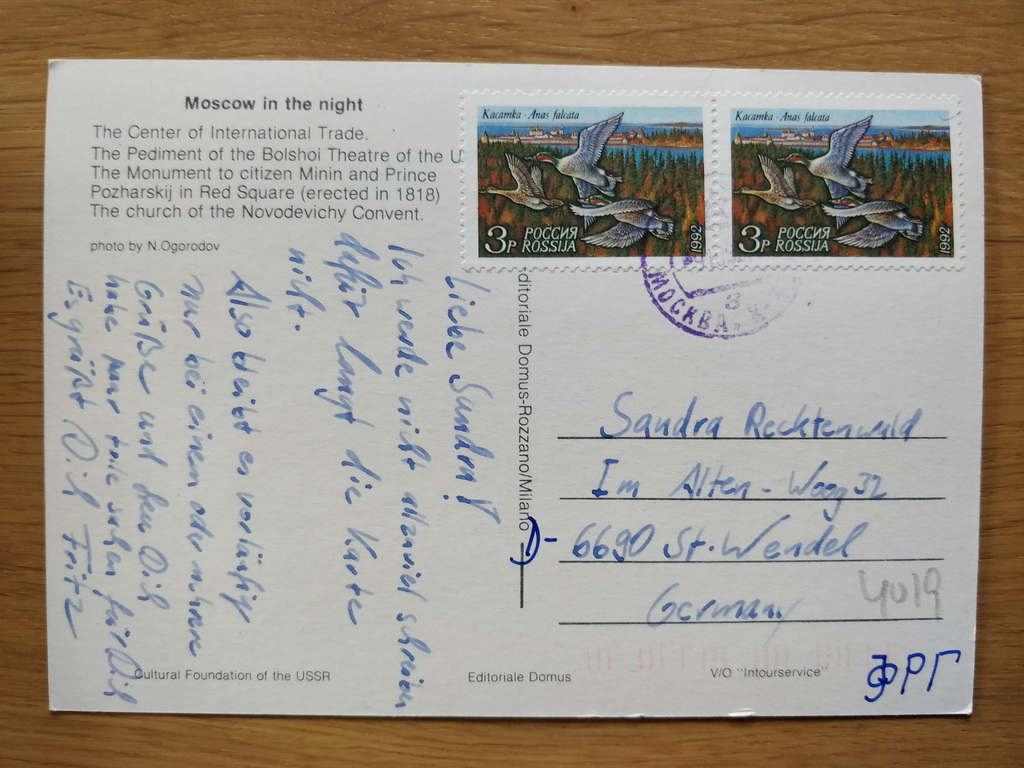 Moscow in the night
The Center of International Trade.
The Pediment of the Bolshoi Theatre of the U
The Monument to citizen Minin and Prince
Pozharskij in Red Square (erected in 1818)
The church of the Novodevichy Convent.
photo by N.Ogorodov
Касатка · Anas falcata
3р РОССИЯ
ROSSIJA
1992
Касатка · Anas falcata
3р РОССИЯ
ROSSIJA
1992
МОСКВА
3
Liebe Sandra!
Ich werde nicht allzuviel schreiben
dafür langt die Karte
nicht.
Also bleibt es vorläufig
nur bei einem oder mehrere
Grüße und den Dich
habe nur tolle sachen für Dich
Es grüßt Dich Fritz
ditoriale Domus-Rozzano/Milano
Sandra Recktenwald
Im Alten-Woog 32
D- 6690 St. Wendel
Germany
4019
ФРГ
Cultural Foundation of the USSR
Editoriale Domus
V/O "Intourservice"